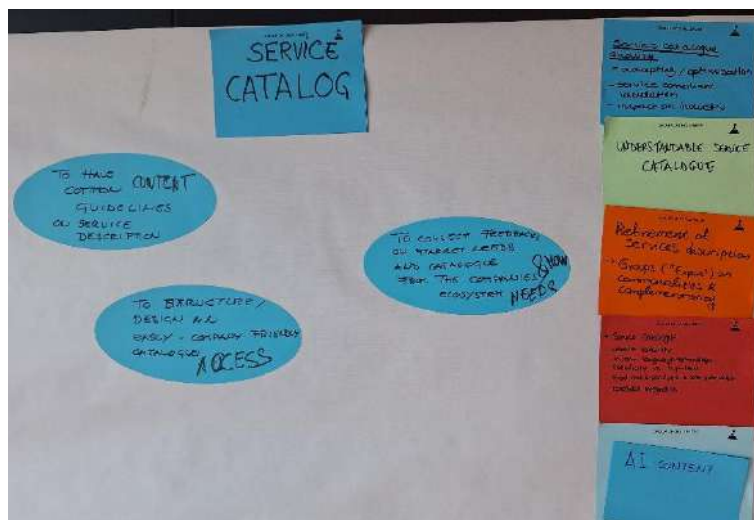 SERVICE
CATALOG
TO HAVE
COTTON CONTENT
GUIDELINES
ON SERVICE
DESCRIPTION
TO COLLECT FEEDBACK
ON MARKET NEEDS
AND CATALOGUE & HOW
FROM THE COMPANIES
ECOSYSTEM NEEDS
TO STRUCTURE/
DESIGN
EASILY-COMPANY FRIENDLY
CATALOGUE ACCESS
Service catalogue
- accepting/optimisation
- service
validation
- impact on industry
UNDERSTANDABLE SERVICE
CATALOGUE
Refinement of
Services description
Groups ("Expur") on
commonalities &
complementarity
Same concept
AI CONTENT